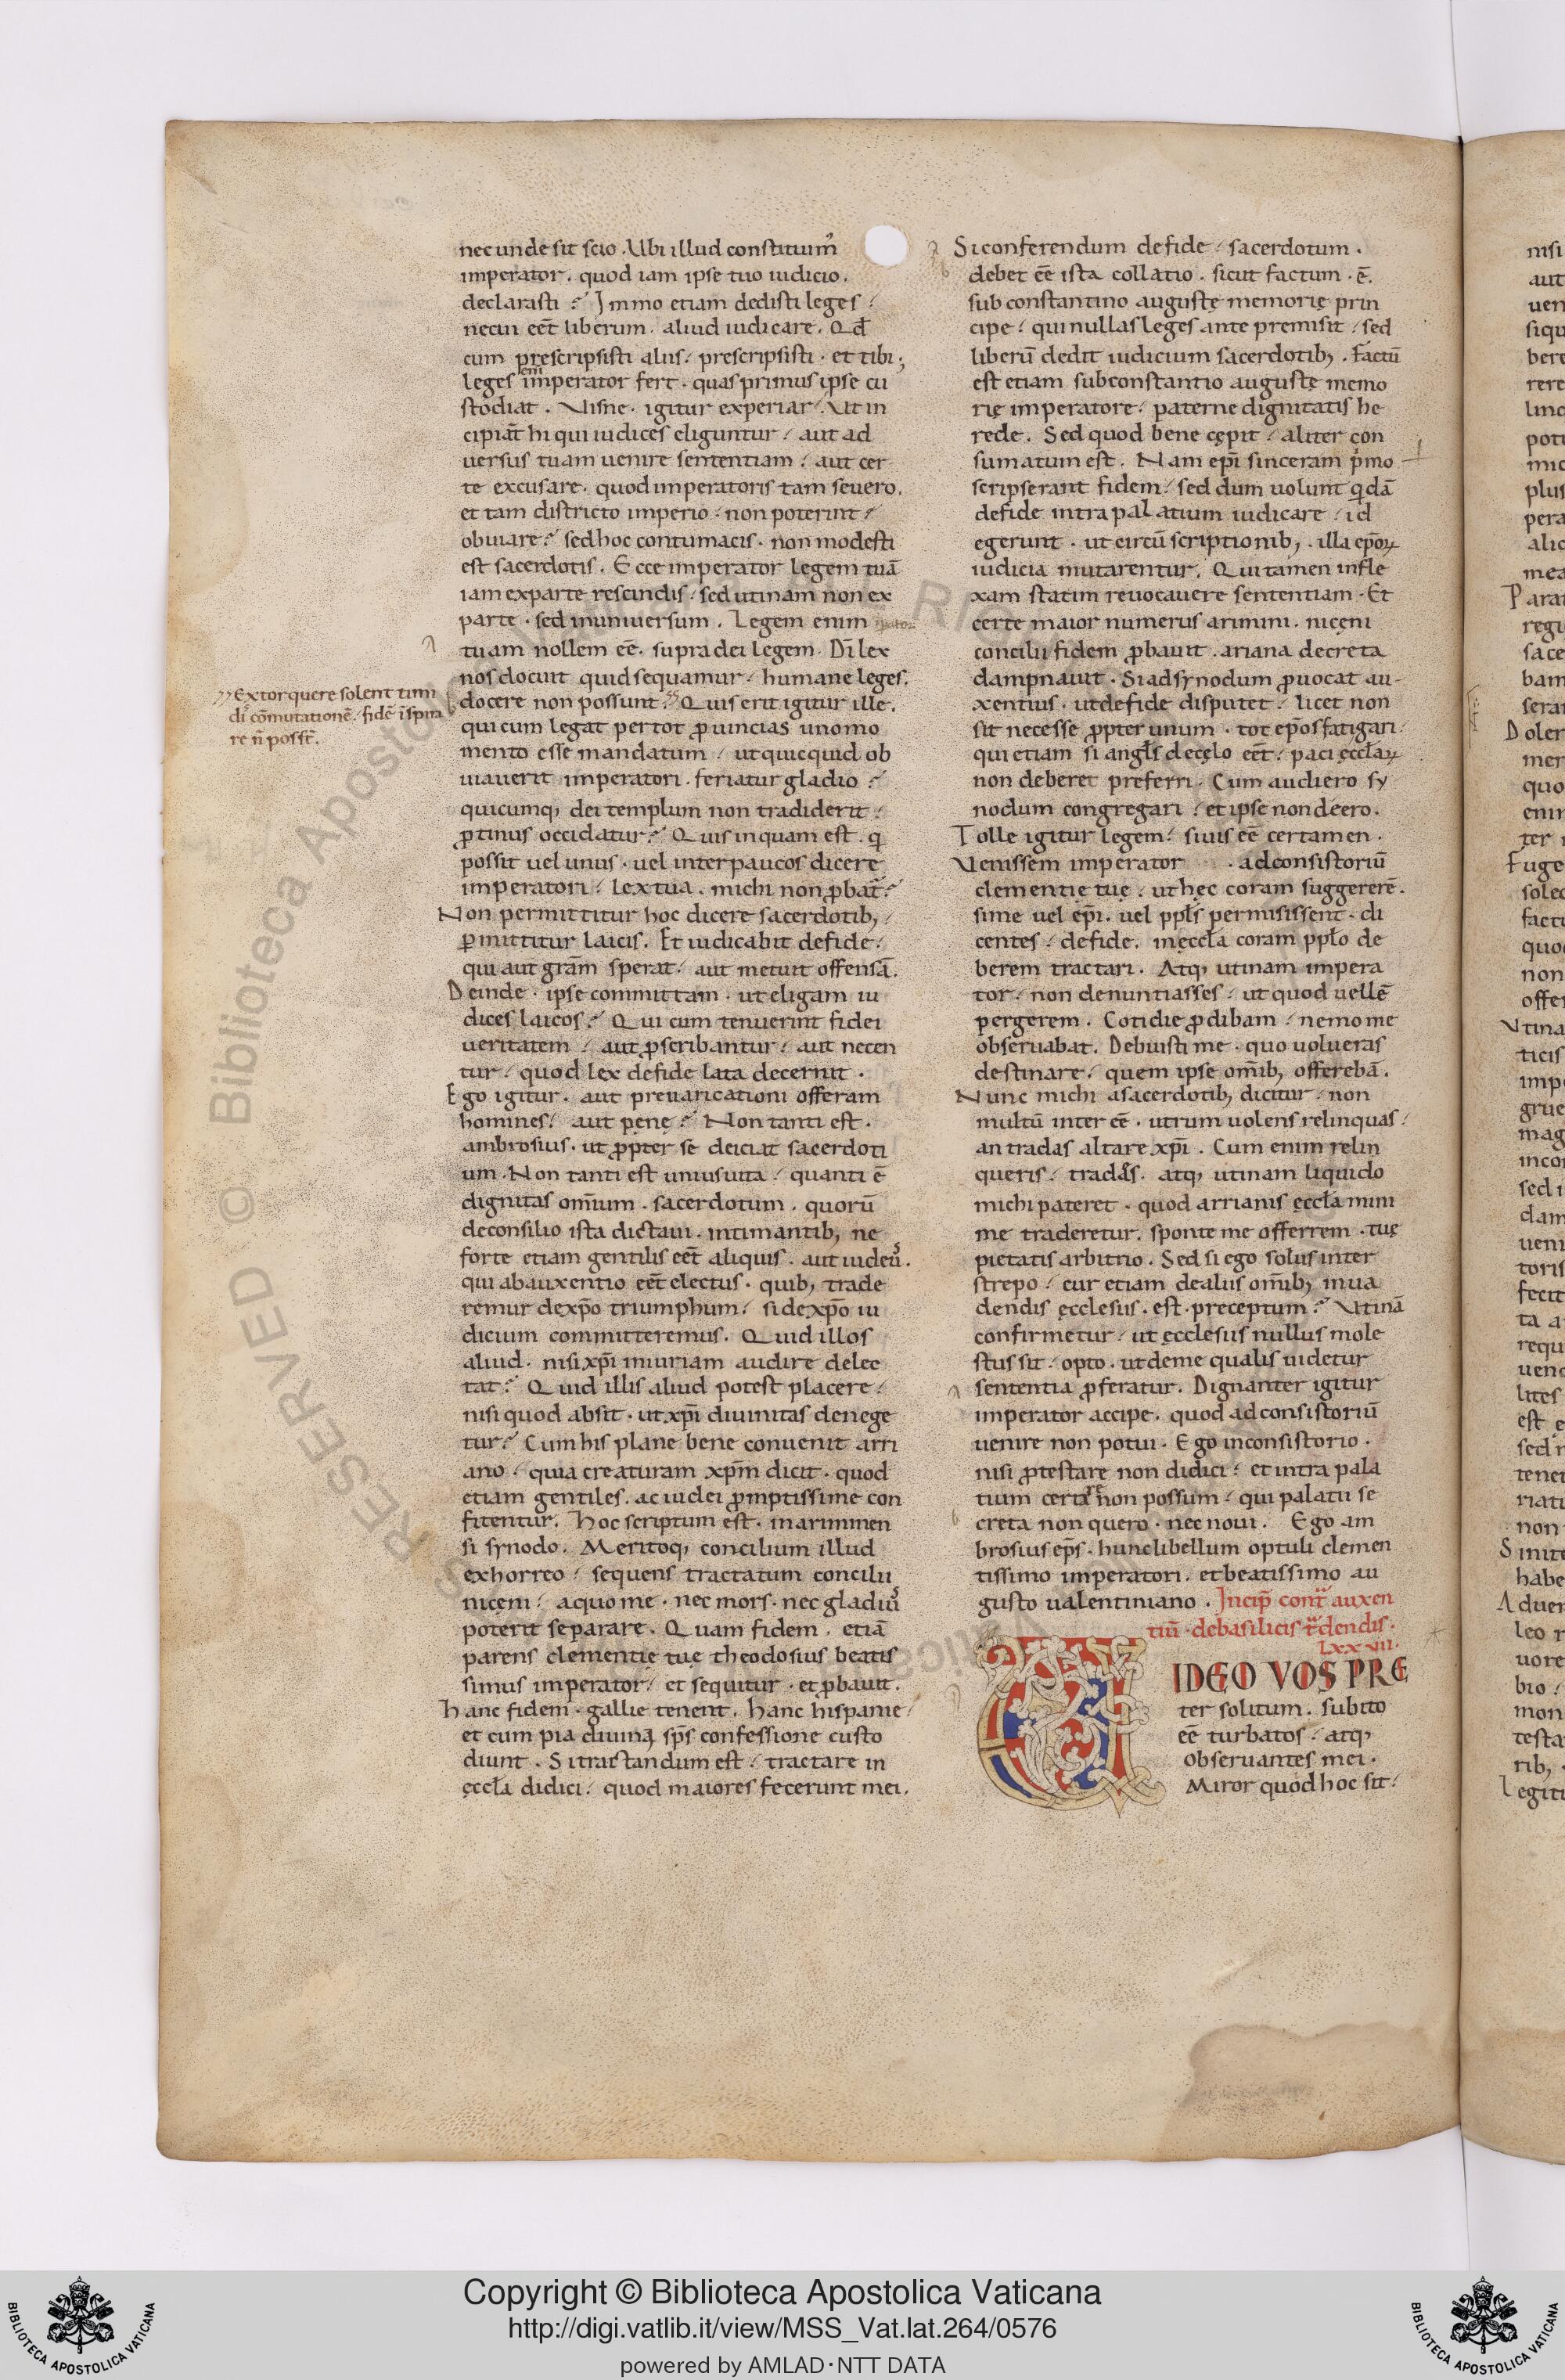 nec unde sit scio. Ubi illud constituim᷒
imperator. quod iam ipse tuo iudicio.
declarasti? Immo etiam dedisti leges.
necui eēt liberum. aliud iudicare. Qđ
cum prescripsisti aliis. prescripsisti. et tibi;
leges em̄ imperator fert. quas primus ipse cu
stodiat. Visne. igitur experiar. Ut in
cipiāt hi qui iudices eliguntur. aut ad
uersus tuam uenire sententiam. aut cer
te excusare. quod imperatoris tam seuero.
et tam districto imperio. non poterint.
obuiare? sed hoc contumacis. non modesti
est sacerdotis. Ecce imperator legem tuā
iam ex parte rescindis. sed utinam non ex
parte. sed in uniuersum. Legem enim
tuam nollem eē. supra dei legem. Dī lex
nos docuit quid sequamur. humane leges.
docere non possunt. Quis erit igitur ille.
qui cum legat per tot ꝓuincias uno mo
mento esse mandatum. ut quicquid ob
uiauerit imperatori. feriatur gladio?
quicumq; dei templum non tradiderit.
ꝓtinus occidatur? Quis inquam est. q̇
possit uel unus. uel inter paucos dicere
imperatori. lex tua. michi non ꝓbat̄?
Non permittitur hoc dicere sacerdotib;
ꝑmittitur laicis. Et iudicabit de fide.
qui aut grām sperat. aut metuit offensā.
Deinde. ipse committam. ut eligam iu
dices laicos? Qui cum tenuerint fidei
ueritatem. aut ꝓscribantur. aut necen
tur. quod lex de fide lata decernit.
Ego igitur. aut preuaricationi offeram
homines. aut pęnę? Non tanti est.
ambrosius. ut ꝓpter se deiciat sacerdoti
um. Non tanti est unius uita. quanti ē
dignitas om̄ium. sacerdotum. quorū
de consilio ista dictaui. intimantib; ne
forte etiam gentilis eēt aliquis. aut iudeu᷒.
qui ab auxentio eēt electus. quib; trade
remur de xp̄o triumphum. si de xp̄o iu
dicium committeremus. Quid illos
aliud. nisi xp̄i iniuriam audire delec
tat? Quid illis aliud potest placere.
nisi quod absit. ut xp̄i diuinitas denege
tur? Cum his plane bene conuenit arri
ano. quia creaturam xp̄m dicit. quod
etiam gentiles. ac iudei ꝓmptissime con
fitentur. Hoc scriptum est. in ariminen
si synodo. Meritoq; concilium illud
exhorreo. sequens tractatum concilii
nicęni. a quo me. nec mors. nec gladiu᷒
poterit separare. Quam fidem. etiā
parens clementię tuę theodosius beatis
simus imperator. et sequitur. et ꝓbauit.
Hanc fidem. gallie tenent. hanc hispanie.
et cum pia diuini sp̄s confessione custo
diunt. Si tractandum est. tractare in
ęccła didici. quod maiores fecerunt mei.
Extorquere solent timi
di᷒ cōmutationē. fidē īspira
re n̄ posst̄.
Si conferendum de fide. sacerdotum.
debet eē ista collatio. sicut factum. ē.
sub constantino augustę memorię prin
cipe. qui nullas leges ante premisit. sed
liberū dedit iudicium sacerdotib;. Factū
est etiam sub constantio augustę memo
rię imperatore. paterne dignitatis he
rede. Sed quod bene cępit. aliter con
sumatum est. Nam ep̄i sinceram pⁱmo
scripserant fidem. sed dum uolunt qⁱdā
de fide intra palatium iudicare. id
egerunt. ut circū scriptionib;. illa ep̄oꝝ
iudicia mutarentur. Qui tamen infle
xam statim reuocauere sententiam. Et
certe maior numerus arimini. nicęni
concilii fidem ꝓbauit. ariana decreta
dampnauit. Si ad synodum ꝓuocat au-
xentius. ut de fide disputet. licet non
sit necesse ꝓpter unum. tot ep̄os fatigari.
qui etiam si angłs de cęlo eēt. paci ęccłaꝝ
non deberet preferri. Cum audiero sy
nodum congregari. et ipse non deero.
Tolle igitur legem. si uis eē certamen.
Venissem imperator . ad consistoriū
clementię tuę. ut hęc coram suggererē.
si me uel ep̄i. uel ppłs permisissent. di
centes. de fide. in ęccła coram ppło de
berem tractari. Atq; utinam impera
tor. non denuntiasses. ut quod uellē
pergerem. Cotidie ꝓdibam. nemo me
obseruabat. Debuisti me. quo uolueras
destinare. quem ipse om̄ib; offerebā.
Nunc michi a sacerdotib; dicitur. non
multū inter eē. utrum uolens relinquas.
an tradas altare xp̄i. Cum enim relin
queris. tradas. atq; utinam liquido
michi pateret. quod arrianis ęccła mini
me traderetur. sponte me offerrem. tuę
pietatis arbitrio. Sed si ego solus inter
strepo. cur etiam de aliis om̄ib; inua
dendis ęcclesiis. est. preceptum? Utinā
confirmetur. ut ęcclesiis nullus mole
stus sit. opto. ut de me qualis uidetur
sententia ꝓferatur. Dignanter igitur
imperator accipe. quod ad consistoriū
uenire non potui. Ego in consistorio.
nisi ꝓ te stare non didici. et intra pala
tium certare non possum. qui palatii se
creta non quero. nec noui. Ego am
brosius ep̄s. hunc libellum optuli clemen
tissimo imperatori. et beatissimo au
gusto ualentiniano. Incip̄ contᷓ auxen
tiū. de basilicis tᷓdendis.
lxxvii.
VIDEO VOS PRE
ter solitum. subito
eē turbatos. atq;
obseruantes mei.
Miror quod hoc sit.
Copyright © Biblioteca Apostolica Vaticana
http://digi.vatlib.it/view/MSS_Vat.lat.264/0576
powered by AMLAD·NTT DATA
BIBLIOTECA APOSTOLICA VATICANA
BIBLIOTECA APOSTOLICA VATICANA